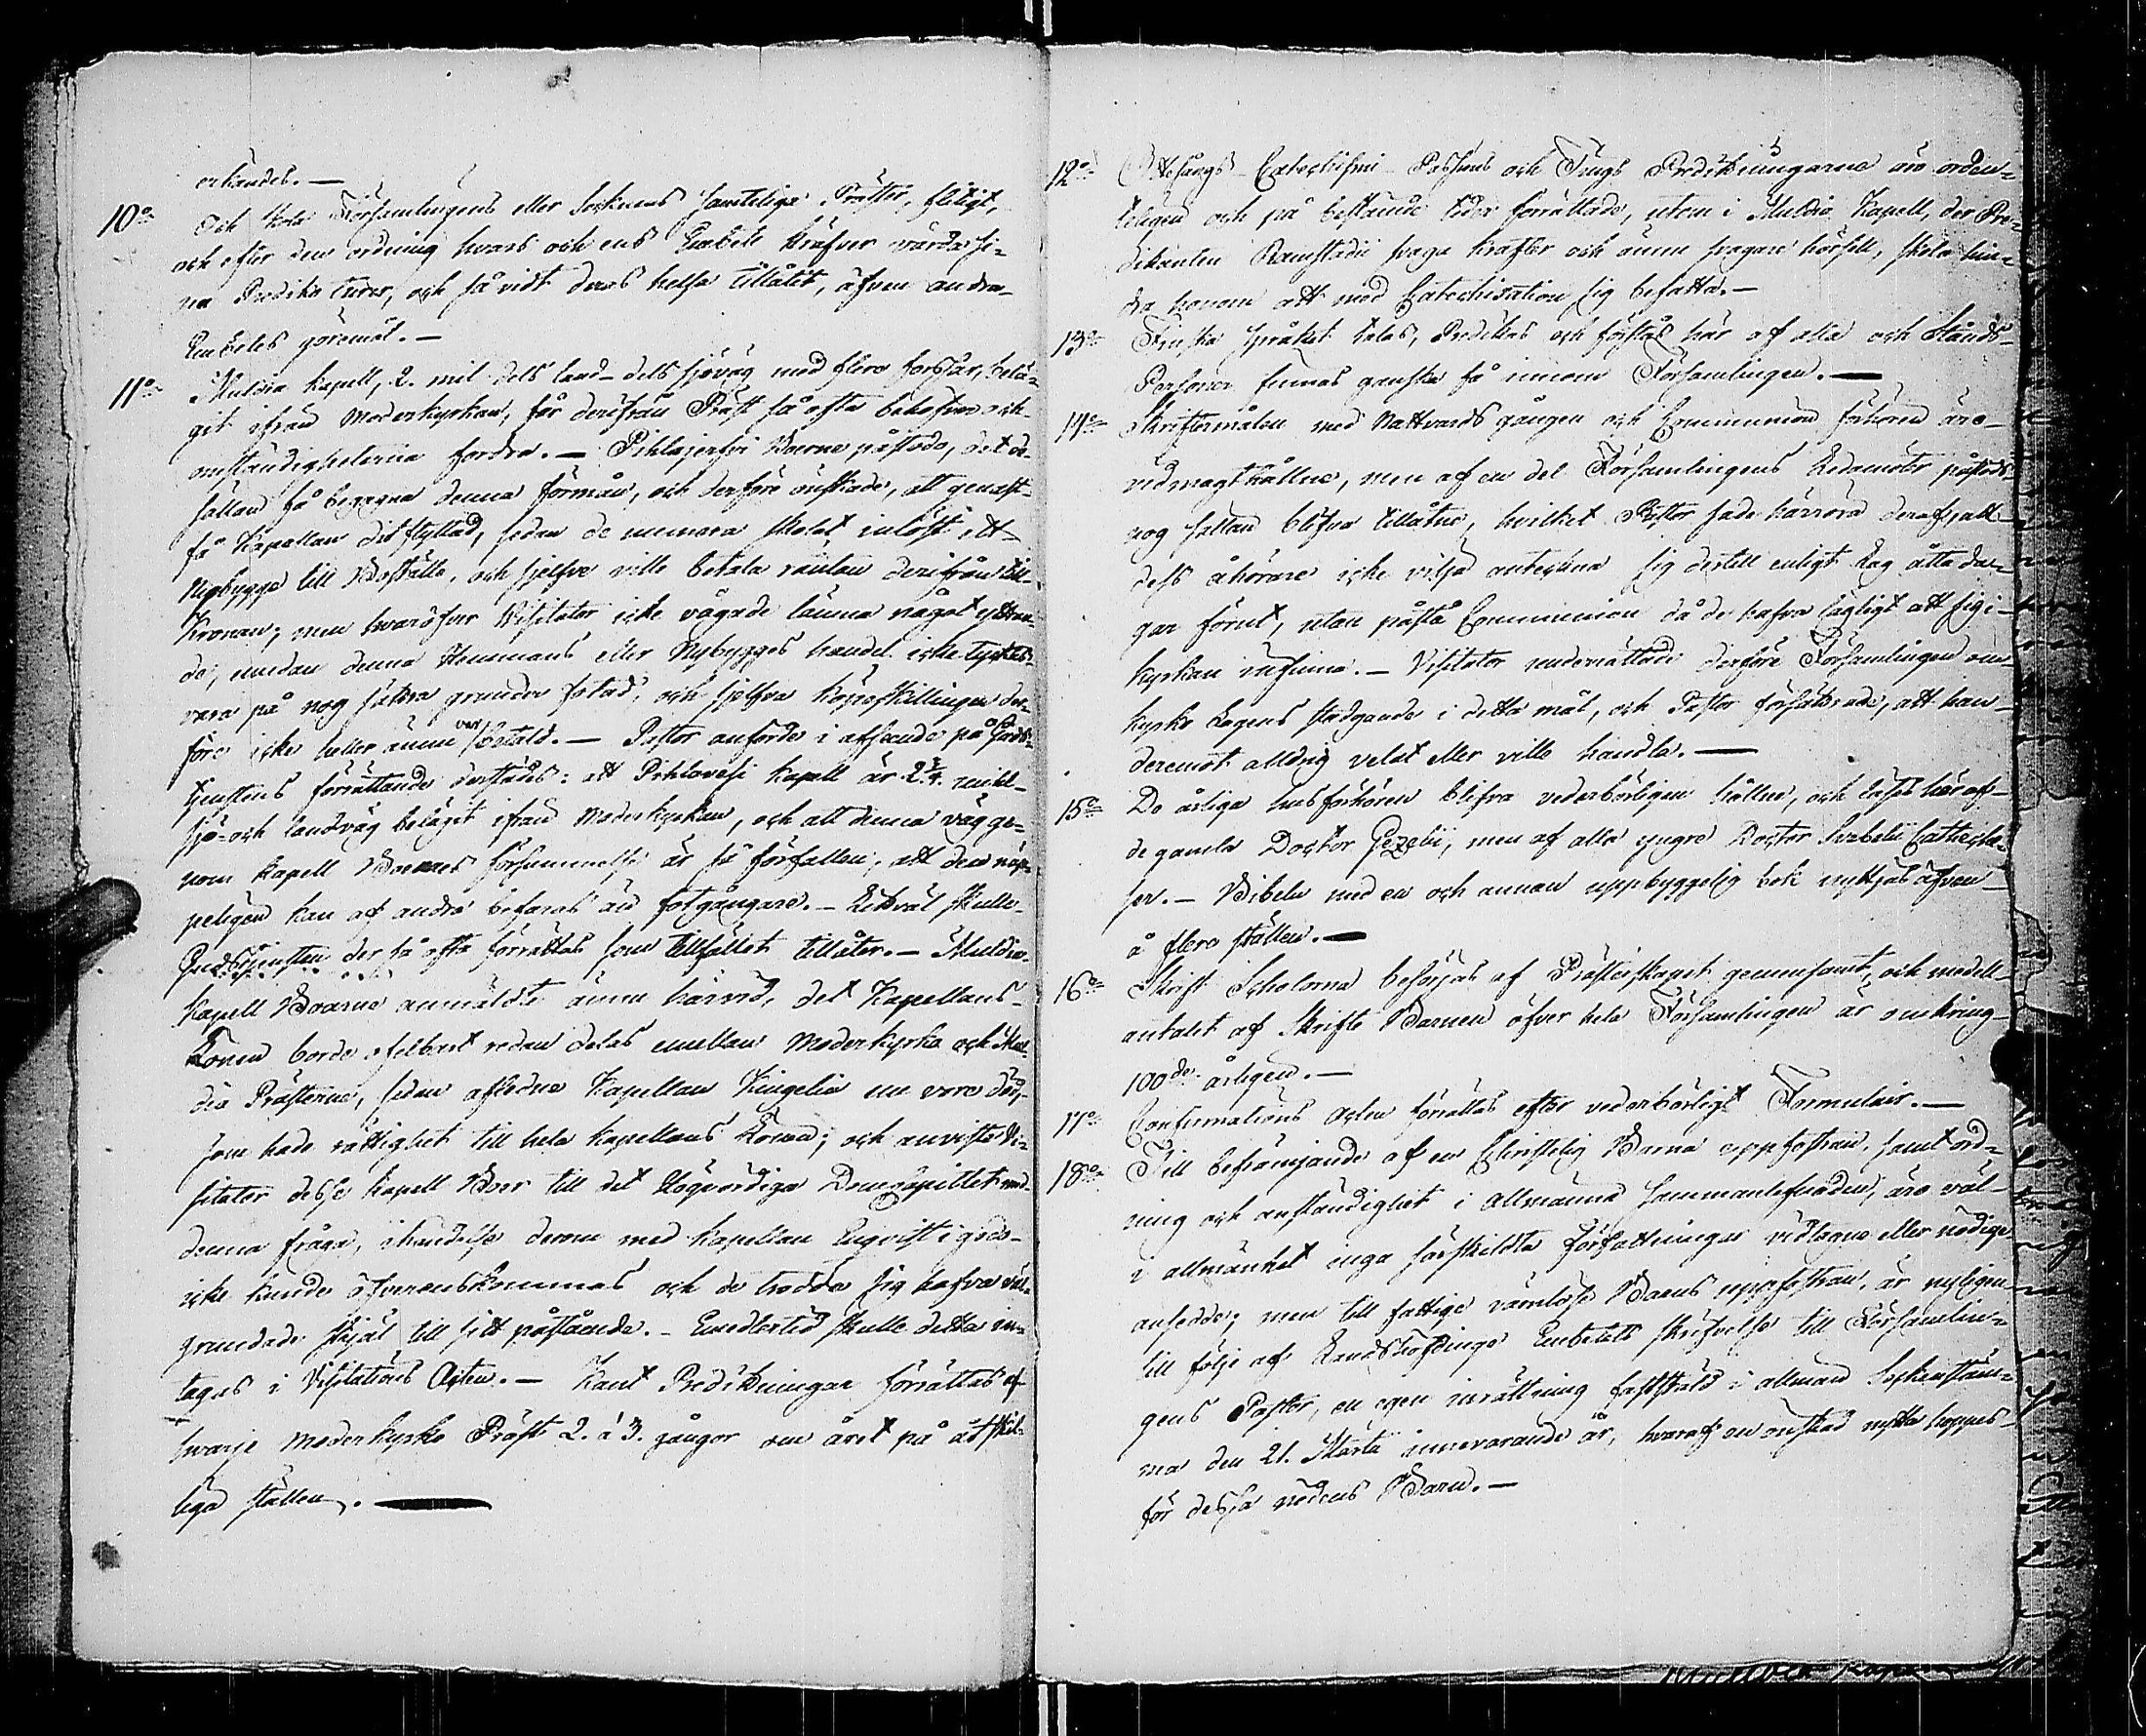 erkändes. —
10:o Och skola Församlingens eller Socknens samtelige Präster, flitigt,
och efter den ordning hvars och ens Embete kräfver vårda si-
na Prediko turer, och så vidt deras helsa tillåtit, äfven andra
Embetes göremål. —
11:o Muldia Kapell, 2. mil dels land- dels sjöväg med flere forssar, belä-
git ifrån Moderkyrkan, får derifrån Präst så ofta behofven och
omständigheterna fordra. — Pihlajavesi Boerne påstodo, det de
sällan få begagna denna förmån, och derföre önskade, att genast
få Kapellan dit flyttad, sedan de numera skolat inlöst ett
Nybygge till Boställe, och sjelfve ville betala räntan derifrån till
Kronan; men hvaröfver Visitator icke vågade lämna något yttran-
de, emedan denna Hemmans eller Nybygges handel icke tycktes
vara på nog säkra grunder fotad, och sjelfva köpeskillingen der-
före icke heller ännu var betald. — Pastor anförde i afseende på Guds-
tjenstens förrättande derstädes: att Pihlavesi Kapell är 2 3/4. mil
sjö- och landväg beläget ifrån Moderkyrkan, och att denna väg ge-
nom Kapell Boernes försummelse är så förfallen, att den näp-
peligen kan af andra befaras än fotgängare. — Likväl skulle
Gudstjensten der så ofta förrättas som tillfället tillåter. — Muldia
Kapell Boarne anmälte ännu härvid, det Kapellans
Lönen borde ofelbart redan delas emellan Moderkyrko och Mul-
dia Prästerne, sedan afledne Kapellan Kingelin nu vore död,
som hade rättighet till hela Kapellans Lönen; och anviste Vi-
sitator desse Kapell Boer till det Högvördiga Domcapitlet med
denna fråga, i händelse derom med Kapellan Enqvist i godo
icke kunde öfverenskommas och de trodde sig hafva väl
grundade skjäl till sitt påstående. — Emedlertid skulle detta in-
tagas i Visitations Acten. — Kant Predikningar förrättas af
hvarje Moderkyrko Präst 2. à 3. gångor om året på åtskil-
liga ställen. —
12:o Ottesångs- Catechismi- Passions och Tings Predikningarne äro orden-
teligen och på bestämde tider förrättade, utom i Muldia Kapell, der Pre-
dikanten Ramstadii svaga krafter och ännu svagare hörsell, skola hin-
dra honom att med Catechisation sig befatta. —
13:o Finska språket talas, Predikas och förstås här af alla och Stånds-
Personer finnas ganska få innom Församlingen. —
14:o Skriftermålen med Nattvards gången och Communion förhören äro
vidmagthållne, men af en del Församlingens Ledamöter påstods
nog sällan blifva tillåtne, hvilket Pastor sade härröra deraf, att
dess åhörare icke vilja anteckna sig dertill enligt Lag åtta da-
gar förut, utan påstå Communion då de hafva lägligt att sig i
kyrkan infinna. — Visitator underrättade derföre Församlingen om
kyrko Lagens stadgande i detta mål, och Pastor försäkrade, att han
deremot alldrig velat eller ville handla. —
15:o De årliga husförhören blifva vederbörligen hållne, och läses här af
de gamle Doctor Gezelii, men af alla yngre Doctor Svebelii Cateche-
ser. — Bibeln med en och annan uppbyggelig bok nyttjas äfven
å flera ställen. —
16:o Skrift Scholorna besörjas af Prästerskapet gemensamt, och medel-
antalet af Skrifte Barnen öfver hela Församlingen är omkring
100:de årligen. —
17:o Confirmations Acten förrättas efter vederbörligt Formulair. —
18:o Till befrämjande af en Christelig Barna uppfostran, samt ord-
ning och anständighet i allmänna sammanlefnaden, äro väl
i allmänhet inga särskildta författningar vidtagne eller nödige
ansedde; men till fattige värnlöse Barns uppfostran, är nyligen
till följe af Landshöfdinge Embetets skrifvelse till Församlin-
gens Pastor, en egen inrättning faststäld i allmän Sockenstäm-
ma den 21. Martii innevarande år, hvaraf en önskad nytta hoppes
för dessa nödens Barn. —